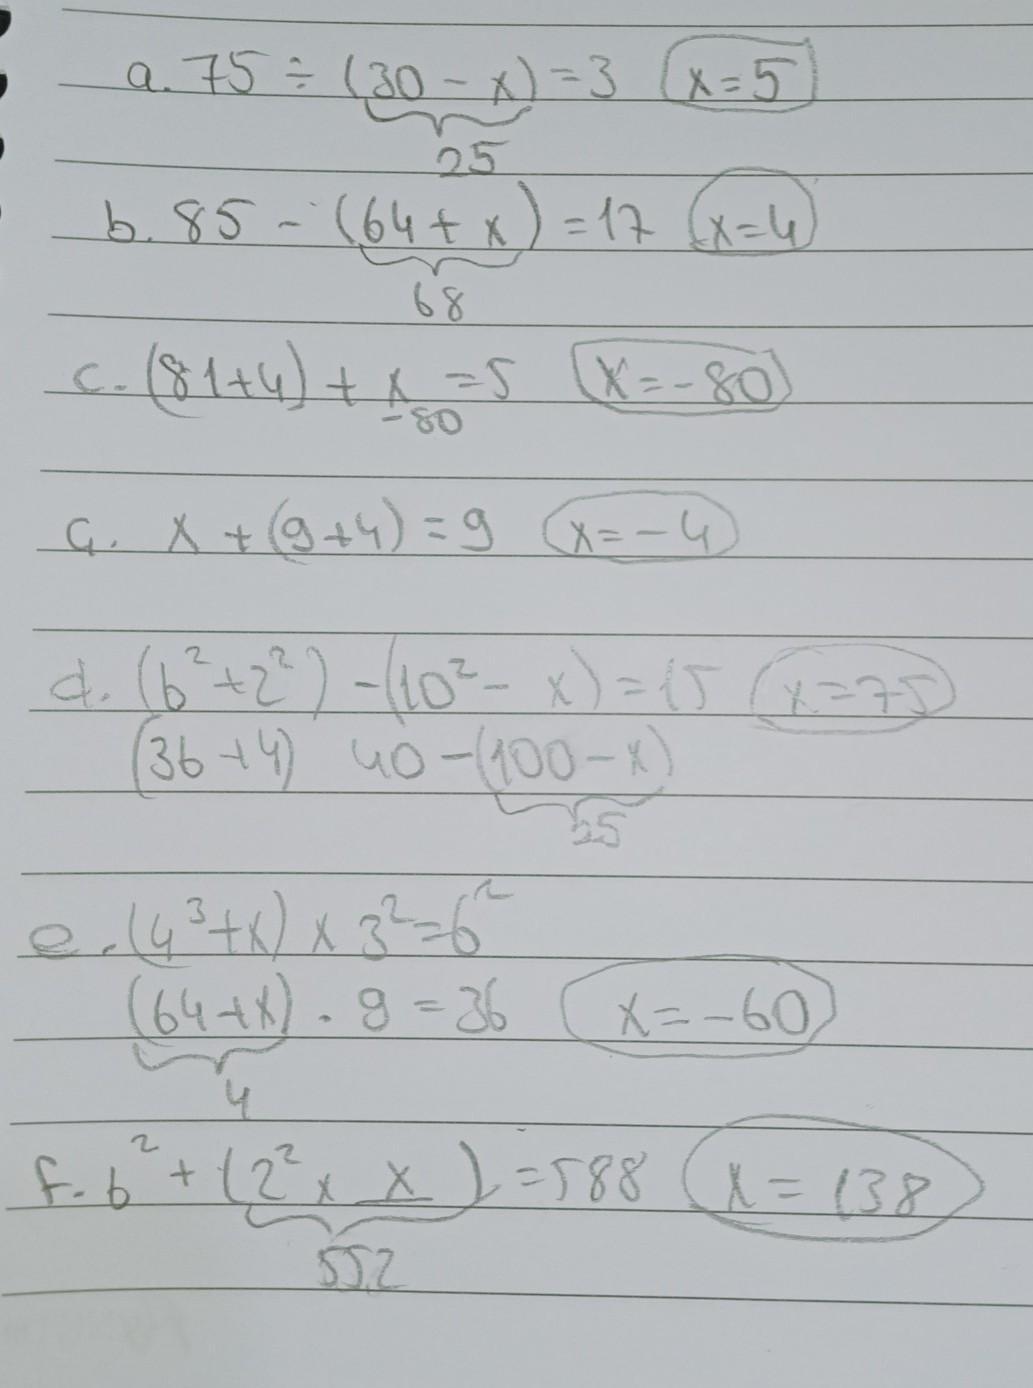 a. 75 ÷ (30 - x) = 3 x = 5
25
b. 85 - (64 + x) = 17 x = 4
68
c. (81+4) + x = 5 x = -80
-80
ç. x + (9+4) = 9 x = -4
d. (6²+2²) - (10² - x) = 15 x = 75
(36+4) 40 - (100 - x)
25
e. (4³+x) x 3² = 6²
(64+x) . 9 = 36 x = -60
4
f. 6² + (2² x x) = 588 x = 138
552